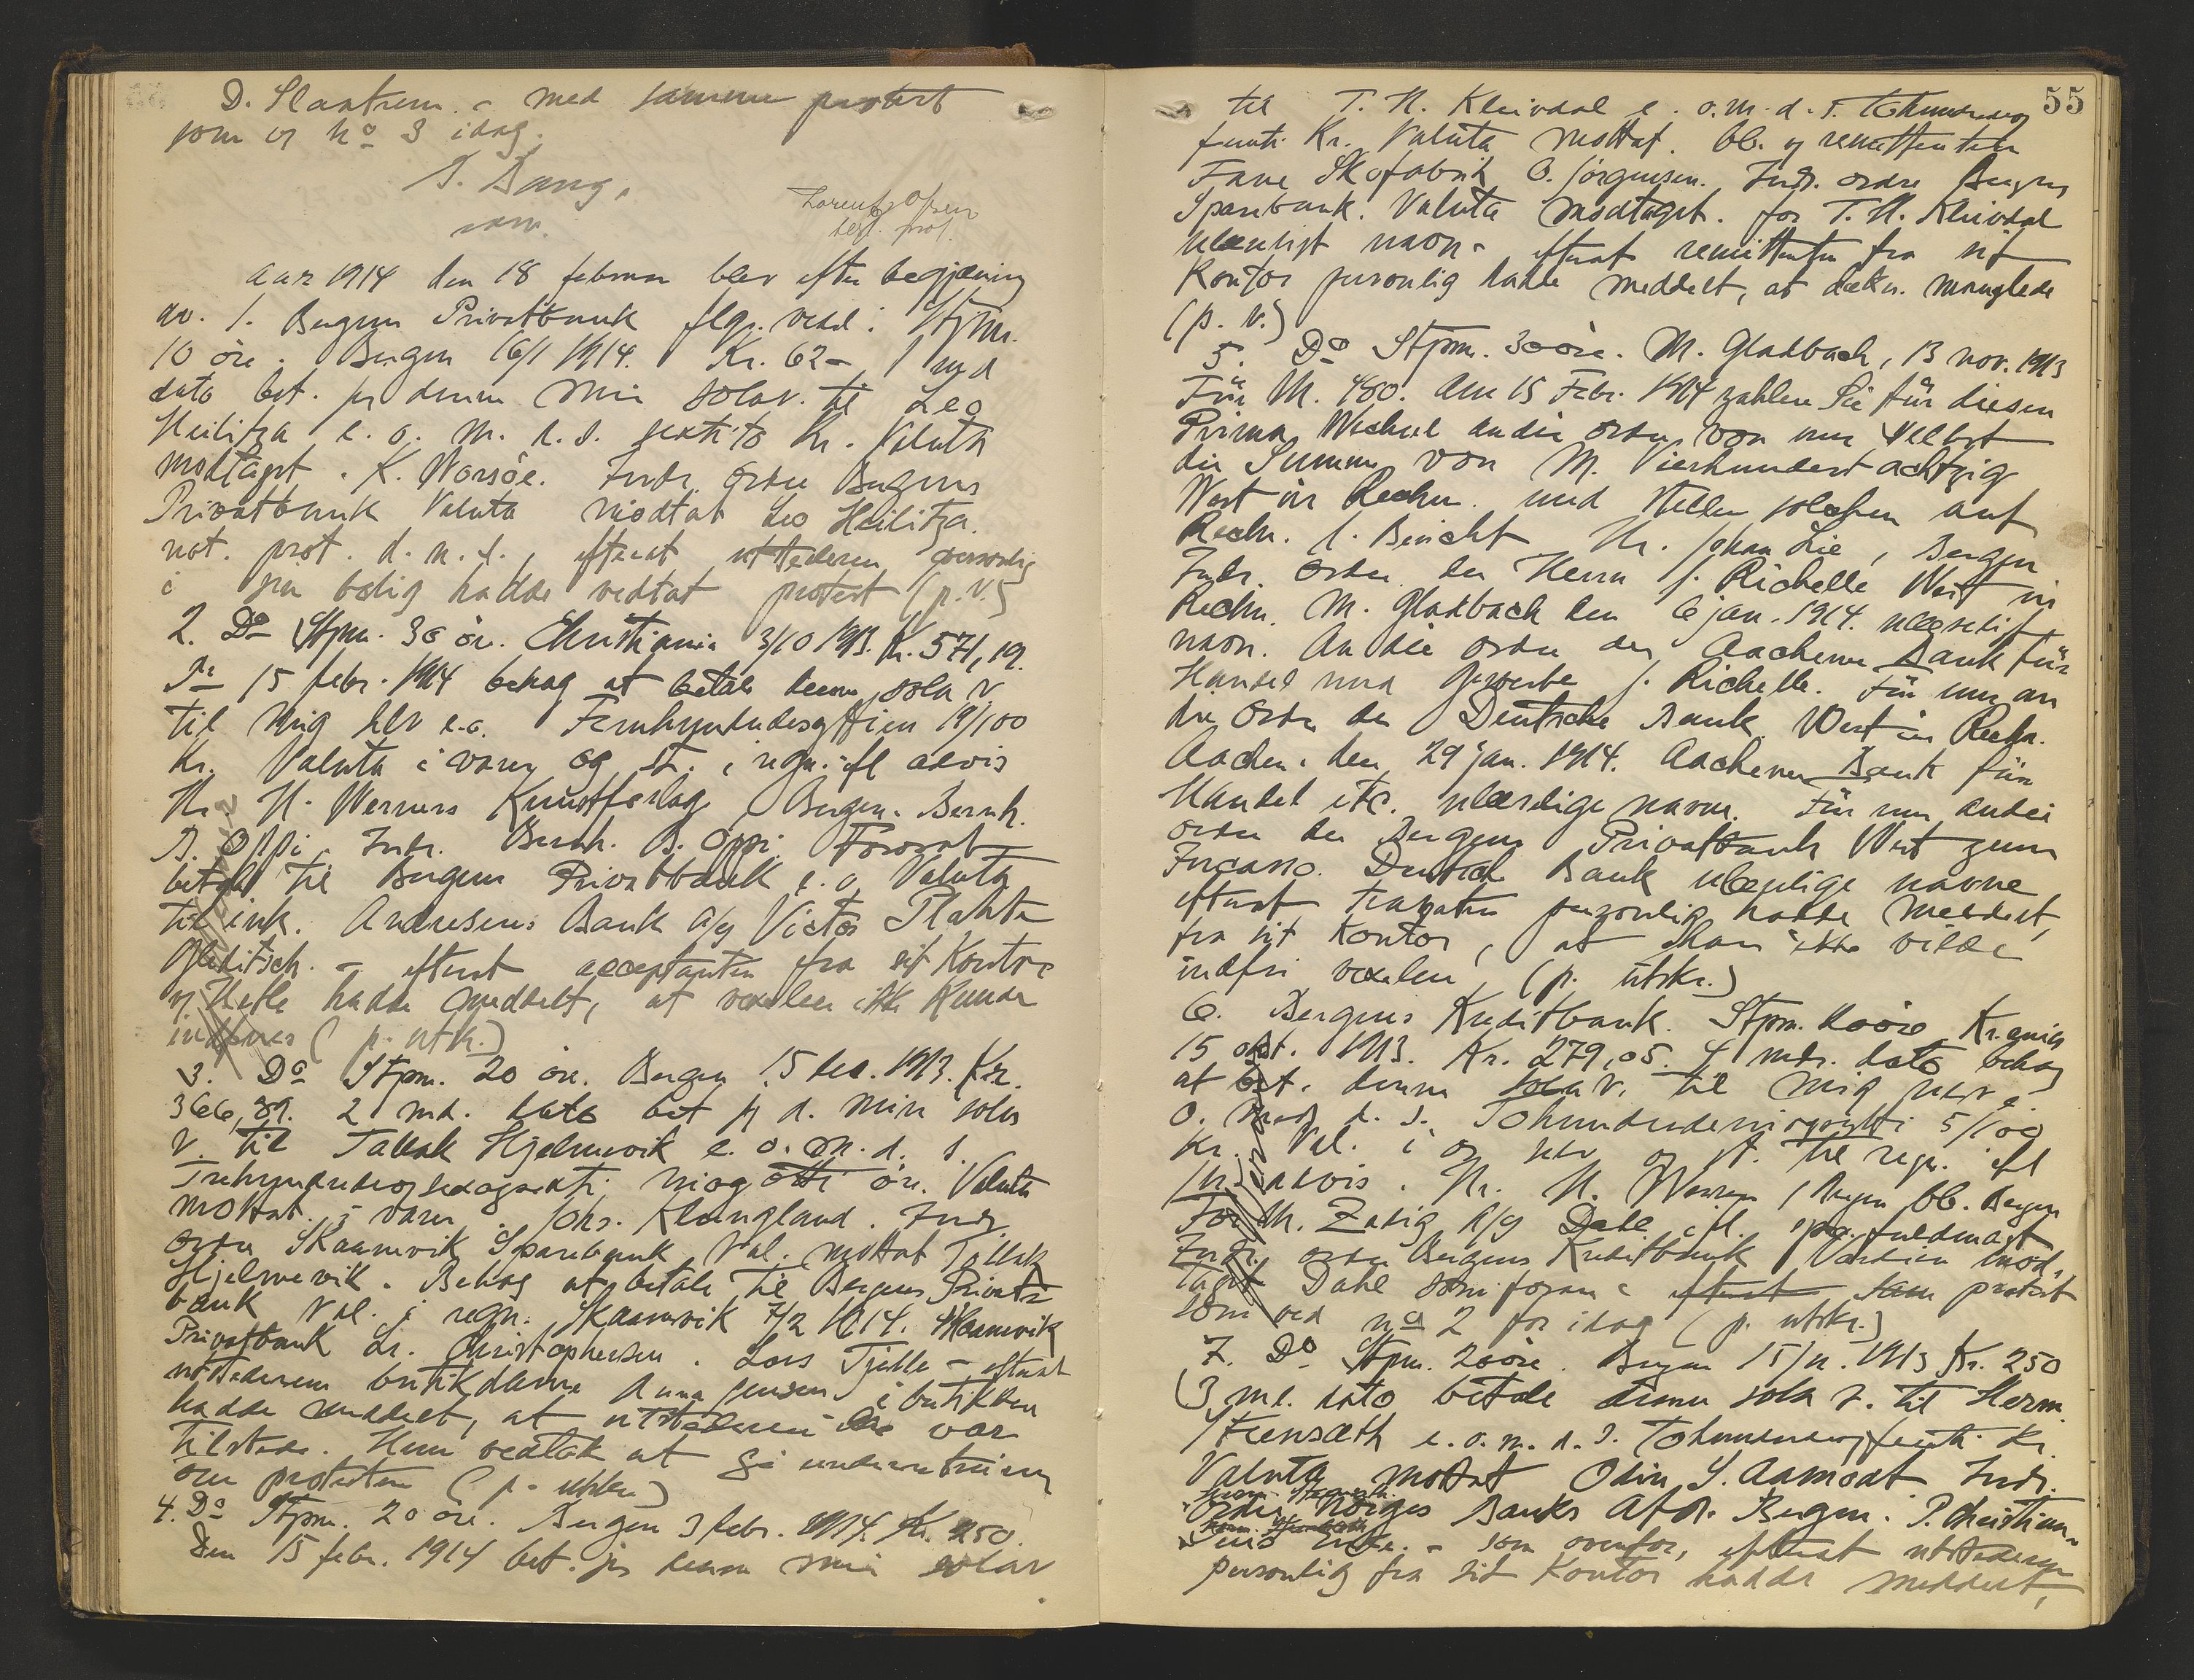 D. Slaatrem. - med samme protest
som og No 3 idag.
S. Bang,
Lorentz Olsen
Aar 1914 den 18 februar blev efter begjæring
av. 1. Bergens Privatbank flg. veksl: Stpm.
10 öre. Bergen 16/1 1914. Kr. 62- 1 md
dato bet. jeg denne min solav. til Leo
Heilitza e. o. m. d. s. sextito Kr. Valuta
modtaget. K. Worsöe. Indr. ordre Bergens
Privatbank Valuta modtat Leo Heilitza.
not. prot. d. n. f., efterat utstederen personlig
i sin bolig hadde vedtat protest (p.v.)
2. Do Stpm. 30 öre. Christiania 3/10 1913. Kr. 571,19.
Pr 15 febr. 1914 behag at betale denne sola v
til mig selv e.o. Femhundredesyttien 19/100
Kr. Valuta i varer og st. i regn. ifl advis
Hr H. Werners Kunstforlag, Bergen. Bernh.
B. Oppi. Indr. Bernh. B. Oppi Forrat
betal til Bergens Privatbank e. o. Valuta
til ink. Andresens Bank A/S Victor Plahte
Gleditsch. - efterat acceptanten fra sit Kontor
hadde meddelt, at vexelen ikke Kunde
indfries (p. utsk.)
3. Do Stpm. 20 öre. Bergen 15 dec. 1913. Kr.
366,89. 2 md. dato bet jeg d. min sola
v. til Tallak Hjelmevik e. o. m. d. s.
Trehundredeogsexogsexti, niog otti öre. Valuta
mottat i varer. Johs. Klungland. Indr.
ordre Skaanevik Sparebank Val. mottat Tallak
Hjelmevik. Behag at betale til Bergens Privat-
bank Val. i regn. Skaanevik 7/2 1914. Skaanevik
Privatbank Lr. Christophersen. Lars Tjelle - efterat
utstederens butikdame Anna Jensen i butikken
hadde meddelt, at utstederen ikke var
tilstede. Hun vedtok at gi underretning
om protesten (p. utskr.)
4. Do Stpm. 20 öre. Bergen 3 febr. 1914. Kr. 250.
Den 15 febr. 1914 bet. jeg denne min solav
55
til T. H. Kleivdal e. o. m. d. s. Tohundreog
femti Kr. Valuta mottat. bl. og remittenten
Fane Skofabrik O. Jörgensen. Indr. ordre Bergens
Sparebank. Valuta modtaget. for T. H. Kleivdal
ulæseligt navn - efterat remittenten fra sit
Kontor personlig hadde meddelt, at dækn. manglede
(p. v.)
5. Do Stpm. 30 öre. M. Gladbach, 13 nov. 1913
Für M. 480. Am 15 Febr. 1914 zahlen Sie für diesen
Prima Wechsel an die Ordre von mir selbst
die Summe von M. Vierhundertachtzig
Wert in Rechn. und stellen solchen auf
Rechn. l. Bericht Hr. Johan Lie, Bergen
Indr. Ordre der Herrn J. Richelle Wert in
Rechn. M. Gladbach den 6 jan. 1914. ulæselig
navn. An die Ordre der Aachener Bank für
Handel und Gewerbe J. Richelle. Für uns an
die Ordre der Deutsche Bank Wert in Rechn.
Aachen. den 29 jan. 1914. Aachener Bank für
Handel etc. ulæselige navne. Für uns an die
Ordre der Bergens Privatbank Wert zum
Incasso. Deutsche Bank ulæselige navne,
efterat trassaten personlig hadde meddelt,
fra sit Kontor, at han ikke vilde
indfri vexelen (p. utskr.)
6. Bergens Kreditbank. Stpm. 20 öre Kr.ania
15 okt. 1913. Kr. 279,05. 4 mdr. dato behag
at bet. denne sola v. til mig selv e.
o. med d. s. Tohundredenisyytti 5/100
Kr. Val. i og selv og st. til regn. ifl
advis. Hr. H. Werner, Bergen bl. Bergen
For M. Zadig A/S Dahl ifl. spec. fuldmagt
Indr. ordre Bergens Kreditbank Værdien mod-
taget Dahl som foran - efterat protest
som ved No 2 for idag (p. utskr.)
7. Do Stpm. 20 öre. Bergen 15/11. 1913 Kr. 250
3 md. dato betale denne sola v. til Herm.
Stensæth e. o. m. d. s. Tohundreogfemti Kr.
Valuta mottat Odin S. Aamodt. Indr.
Ordre Norges Banks Afd. Bergen. P. Christian-
- som ovenfor, efterat utstederen
personlig fra sit Kontor hadde meddelt,